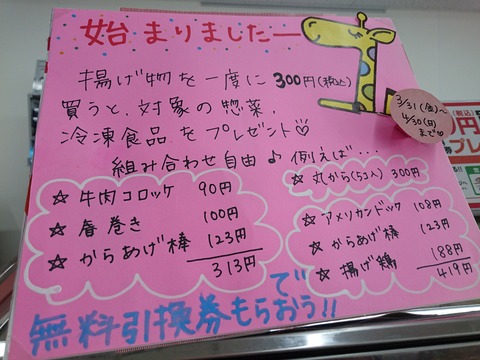 始まりましたー
揚げ物を一度に300円(税込)
買うと、対象の惣菜、
冷凍食品をプレゼント♡
組み合わせ自由♪例えば・・・
3/31(金)〜
4/30(日)
まで♡
☆牛肉コロッケ 90円
☆春巻き 100円
☆からあげ棒 123円
313円
☆丸から(5コ入) 300円
☆アメリカンドック 108円
☆からあげ棒 123円
☆揚げ鶏 188円
419円
無料引換券もらて゛おう!!
(税込)
円
プレ